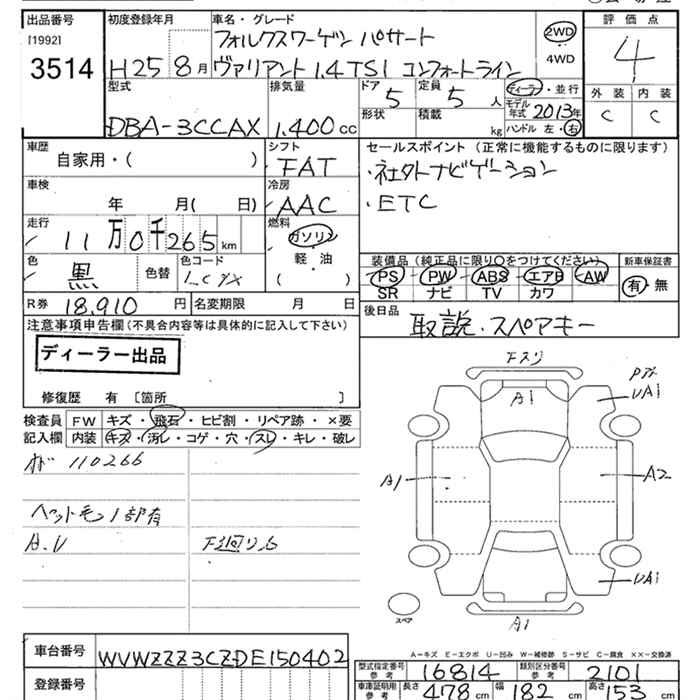 出品番号 初度登録年月 車名・グレード 評価点
[1992] フォルクスワーゲン パサート 2WD
3514 H25 8月 ヴァリアント 1.4TSI コンフォートライン 4WD 4
型式 排気量 ドア 5 定員 5人 ディーラー・並行 外装 内装
形状 積載 kg モデル年式 2013年 C C
DBA-3CCAX 1.400cc ハンドル 左・右
車歴 シフト セールスポイント (正常に機能するものに限ります)
自家用・( ) FAT ・社外ナビゲーション
車検 冷房 ・ETC
年 月( 日) AAC
走行 燃料
11万0千265km ガソリン
軽・油
( )
色 色替 色コード 装備品 (純正品に限り〇をつけてください) 新車保証書
黒 PS PW ABS エアB AW 有・無
SR ナビ TV カワ
R券 18,910円 名変期限 月 日 後日品
取説・スペアキー
注意事項申告欄 (不具合内容等は具体的に記入して下さい)
ディーラー出品
修復歴 有 [箇所 ]
検査員 FW キズ・飛石・ヒビ割・リペア跡・×要
記入欄 内装 キズ・汚レ・コゲ・穴・スレ・キレ・破レ
110266
ヘット毛 1部有
A.U
F下スリ
A1
UA1
A1
A2
UA1
A1
スペア
A-キズ E-エクボ U-凹み W-補修跡 S-サビ C-腐食 XX-交換済
車台番号 WVWZZZ3CZDE150402
型式指定番号 参考 16814 類別区分番号 参考 2101
登録番号 車庫証明用 参考 長さ 478cm 幅 182cm 高さ 153cm